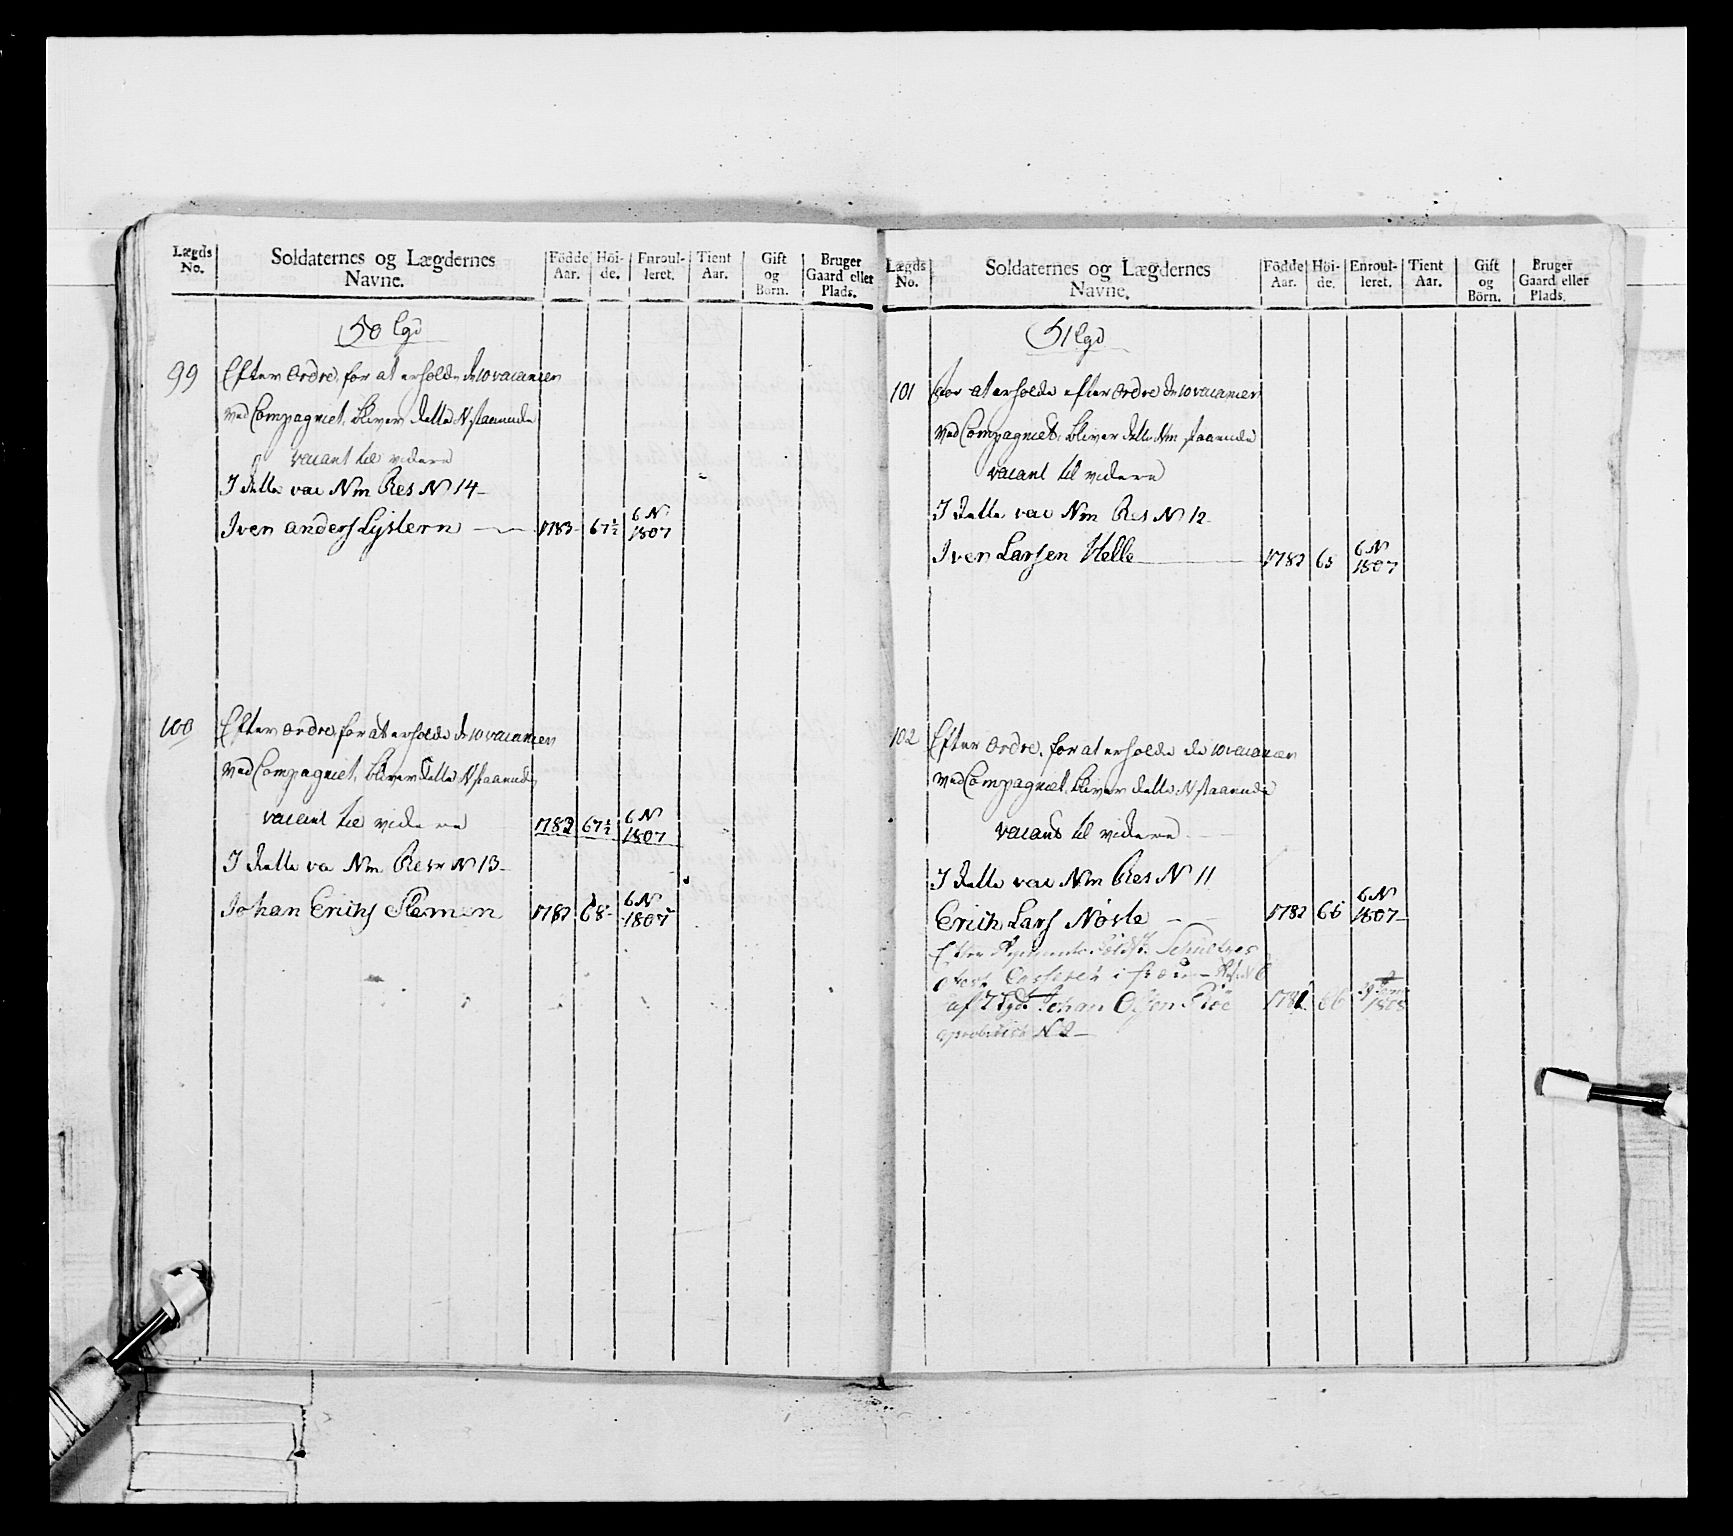 Lægds No.
Soldaternes og Lægdernes Navne.
Födde Aar.
Höi-de.
Enroul-leret.
Tient Aar.
Gift og Börn.
Bruger Gaard eller Plads.
50 Lgd
99 Efter Ordre, for at erholde de 10 vacancer
ved Compagniet, bliver dette N staaende
vacant til videre
I dette vac Nm Res N 14-
Iver Anders Lystern 1783 67½ 6 N 1807
100 Efter ordre, for at erholde de 10 vacancer
ved Compagniet, bliver dette N staaende
vacant til videre 1783 67½ 6 N 1807
I dette va Nm Resr N 13-
Johan Erichs 1782 68 6 N 1807
Lægds No.
Soldaternes og Lægdernes Navne.
Födde Aar.
Höi-de.
Enroul-leret.
Tient Aar.
Gift og Börn.
Bruger Gaard eller Plads.
51 Lgd
101 for at erholde efter Ordre de 10 vacancer
ved Compagniet, bliver dette Nm staaende
vacant til videre
I dette vac Nm Res N 12-
Iver Larsen Helle 1782 65 6 N 1807
102 Efter Ordre, for at erholde de 10 vacancer
ved Compagniet, bliver dette N staaende
vacant til videre
I dette vac Nm Res N 11
Erich Lars Nøste 1782 66 6 N 1807
Efter
af Lgd Johan Olsen 1781 66 1808
N 2